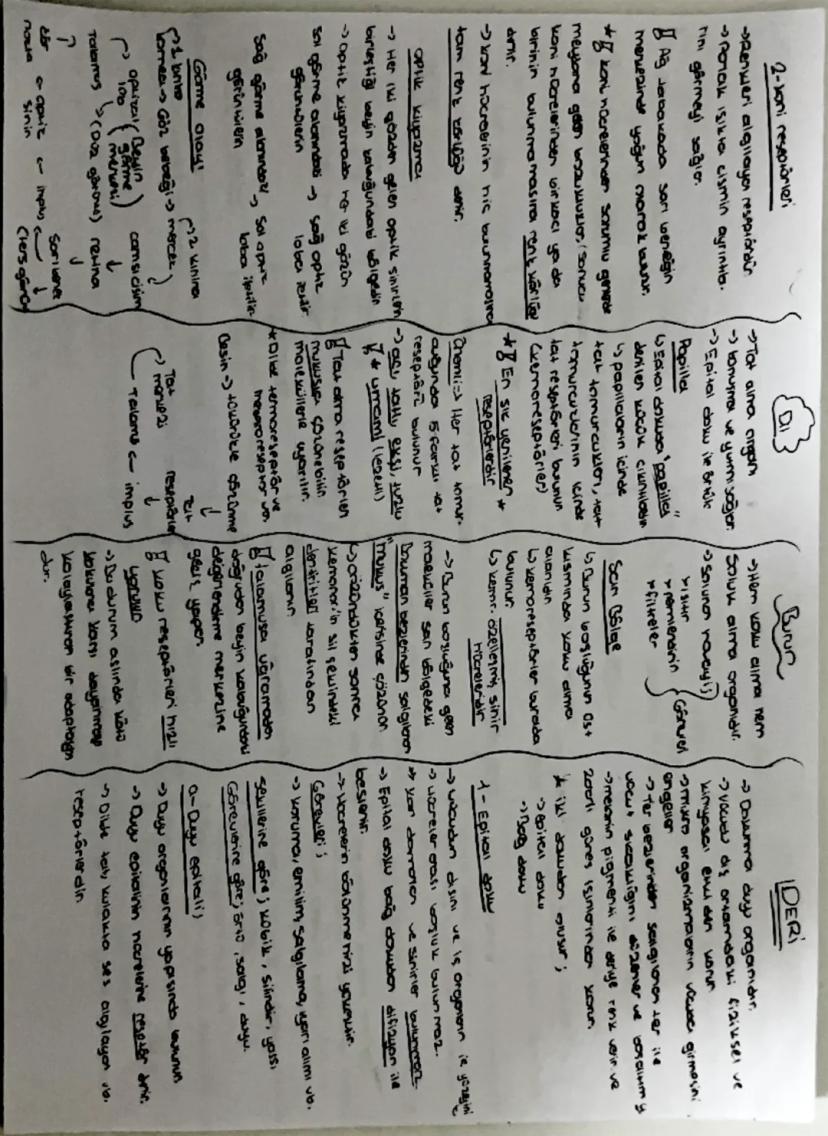 2-Koni reseptörleri
→ Renkleri algılayan reseptördür.
→ Parlak ışıkta cismin ayrıntıla-
rını görmeyi sağlar.
Ağ tabakada sarı beneğin
merkezinde yoğun olarak bulunur.
* Koni hücrelerinden sorumlu genlerde
meydana gelen bozukluklar sonucu
koni hücrelerinden birkaçı ya da
birinin bulunmamasına renk körlüğü
denir.
→ Koni hücrelerinin hiç bulunmamasına
tam renk körlüğü denir.
Optik kiyazma
→ Her iki gözden gelen optik sinirlerin
birleştiği beyin kabuğundaki bölgedir.
→ Optik kiyazmada her iki gözün
sol görme alanındaki → sağ optik
görüntülerin loba iletir.
Sağ görme alanındaki → Sol optik
görüntülerin loba iletilir.
Görme Olayı
1. kırılma 2. kırılma
kornea → Göz bebeği → mercek
oksipital (Beyin görme merkezi) camsı cisim
lob
Talamus (Düz görüntü) retina
optik ← impuls ← Sarı benek
sinir (ters görüntü)
Dil
→ Tat alma organı
→ konuşma ve yutmayı sağlar.
→ Epitel doku ile örtülü
Papilla
↳ Epitel dokuda "papilla"
denilen küçük çıkıntılardır
↳ papillaların içinde
tat tomurcukları, tat
tomurcuklarının içinde
tat reseptörleri bulunur
(kemoreseptörler)
* En sık yenilenen *
reseptörlerdir
Önemli → Her tat tomur-
cuğunda 5 farklı tat
reseptörü bulunur
→ acı, tatlı, ekşi, tuzlu
* umami (lezzetli)
Tat alma reseptörleri
mukusta çözünebilir
moleküllerle uyarılır.
* Dilde termoreseptör ve
mekanoreseptör var.
Besin → tükürükte çözünme
Tat
reseptörleri
Tat merkezi
Talamus ← impuls
Burun
→ Hem koku alma hem
soluk alma organıdır.
→ Solunan havayı;
* ısıtır
* nemlendirir
* filtreler
Görevi
Sarı Bölge
↳ Burun boşluğunun üst
kısmında koku alma
alanıdır
↳ kemoreseptörler burada
bulunur.
↳ kemr. özelleşmiş sinir
hücreleridir
→ Burun boşluğuna gelen
moleküller sarı bölgedeki
Bowman bezlerinden salgılanan
"mukus" içerisinde çözünür
↳ çözündükten sonra
kemorör'ün sil şeklindeki
dentritleri tarafından
algılanır
talamusa uğramadan
doğrudan beyin kabuğundaki
değerlendirme merkezine
geçiş yapar.
Koku reseptörleri hızlı
yorulur
→ Bu durum aslında kötü
kokulara karşı dayanmayı
kolaylaştıran bir adaptasyon
dur.
DERİ
→ Dokunma duyu organıdır.
→ Vücudu dış ortamdaki fiziksel ve
kimyasal etkilerden korur
→ mikro organizmaların vücuda girmesini
engeller
→ Ter bezlerinden salgılanan ter ile
vücut sıcaklığını düzenler ve boşaltım
→ melanin pigmenti ile deriye renk verir ve
zararlı güneş ışınlarından korur.
* iki dokudan oluşur;
→ epitel doku
→ Bağ doku
1- Epitel doku
→ Vücudun dışını ve iç organların iç yüzeyini
→ Hücreler arası boşluk bulunmaz.
* Kan damarları ve sinirler bulunmaz
→ Epitel doku bağ dokudan difüzyon ile
beslenir
→ Hücrelerin bölünme hızı yüksektir.
Görevleri;
→ koruma, emilim, salgılama, uyarı alımı vb.
Şekillerine göre; kübik, silindir, yassı
Görevlerine göre; örtü, salgı, duyu.
a- Duyu epitali;
→ Duyu organlarının yapısında bulunur
→ Duyu epitelinin hücrelerine reseptör denir.
→ Dilde tat, kulakta ses algılayan vb.
reseptörlerdir